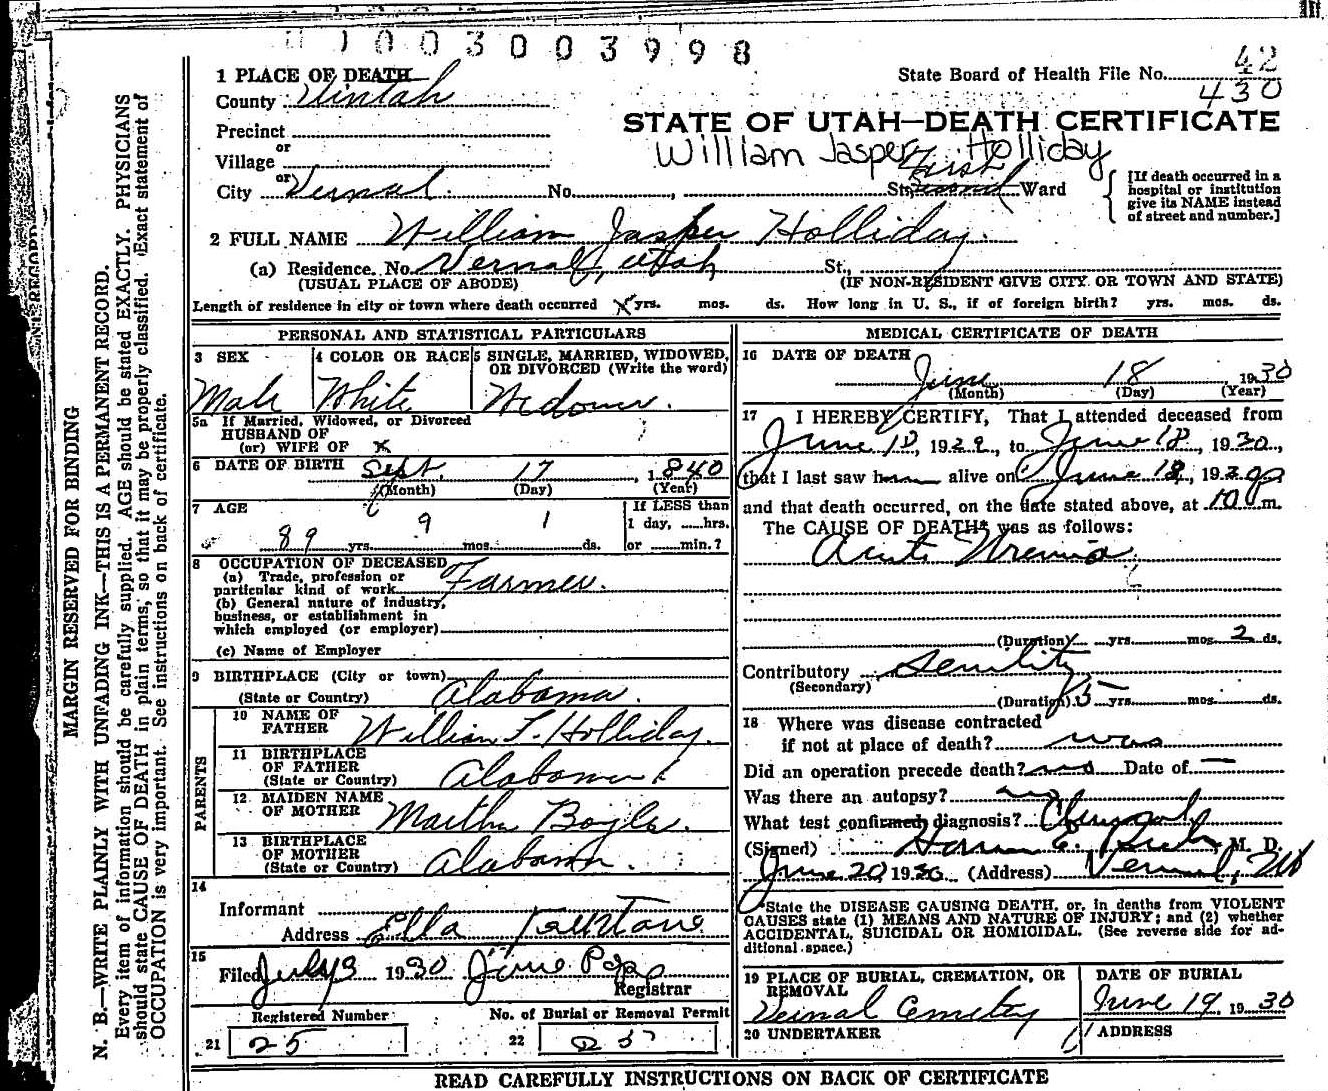 1003003998
42
State Board of Health File No. 430
1 PLACE OF DEATH
County Uintah
STATE OF UTAH—DEATH CERTIFICATE
Precinct
or
William Jasper Holliday
Village
or
City Vernal No. , St., First Second Ward
[If death occurred in a
hospital or institution
give its NAME instead
of street and number.]
2 FULL NAME William Jasper Holliday.
(a) Residence. No. Vernal, Utah St.,
(USUAL PLACE OF ABODE) (IF NON-RESIDENT GIVE CITY OR TOWN AND STATE)
Length of residence in city or town where death occurred X yrs. mos. ds. How long in U. S., if of foreign birth? yrs. mos. ds.
PERSONAL AND STATISTICAL PARTICULARS
3 SEX
Male
4 COLOR OR RACE
White
5 SINGLE, MARRIED, WIDOWED,
OR DIVORCED (Write the word)
Widower.
5a If Married, Widowed, or Divorced
HUSBAND OF
(or) WIFE OF X
6 DATE OF BIRTH Sept. 17, 1840
(Month) (Day) (Year)
7 AGE
89 yrs. 9 mos. 1 ds.
If LESS than
1 day, ......hrs.
or ........min.?
8 OCCUPATION OF DECEASED
(a) Trade, profession or
particular kind of work Farmer.
(b) General nature of industry,
business, or establishment in
which employed (or employer)
(c) Name of Employer
9 BIRTHPLACE (City or town)
(State or Country) Alabama.
PARENTS
10 NAME OF
FATHER William T. Holliday.
11 BIRTHPLACE
OF FATHER
(State or Country) Alabama
12 MAIDEN NAME
OF MOTHER Martha Boyle.
13 BIRTHPLACE
OF MOTHER
(State or Country) Alabama.
14
Informant
Address Ella
15
Filed July 3 1930 Jane Pope
Registrar
Registered Number
21 25
No. of Burial or Removal Permit
22 25
MEDICAL CERTIFICATE OF DEATH
16 DATE OF DEATH
June 18 1930
(Month) (Day) (Year)
17 I HEREBY CERTIFY, That I attended deceased from
June 18, 1929, to June 18, 1930,
that I last saw h alive on June 18, 1930
and that death occurred, on the date stated above, at 10 m.
The CAUSE OF DEATH* was as follows:
Acute Uremia
(Duration) yrs. mos. 2 ds.
Contributory Senility
(Secondary)
(Duration) 5 yrs. mos. ds.
18 Where was disease contracted
if not at place of death? was
Did an operation precede death? no Date of —
Was there an autopsy? no
What test confirmed diagnosis?
(Signed) M. D.
June 20, 1930 (Address) Vernal, Ut
*State the DISEASE CAUSING DEATH, or, in deaths from VIOLENT
CAUSES state (1) MEANS AND NATURE OF INJURY; and (2) whether
ACCIDENTAL, SUICIDAL OR HOMICIDAL. (See reverse side for ad-
ditional space.)
19 PLACE OF BURIAL, CREMATION, OR
REMOVAL
Vernal Cemetry
DATE OF BURIAL
June 19 1930
20 UNDERTAKER
ADDRESS
READ CAREFULLY INSTRUCTIONS ON BACK OF CERTIFICATE
MARGIN RESERVED FOR BINDING
N. B.—WRITE PLAINLY WITH UNFADING INK—THIS IS A PERMANENT RECORD.
Every item of information should be carefully supplied. AGE should be stated EXACTLY. PHYSICIANS
should state CAUSE OF DEATH in plain terms, so that it may be properly classified. Exact statement of
OCCUPATION is very important. See instructions on back of certificate.